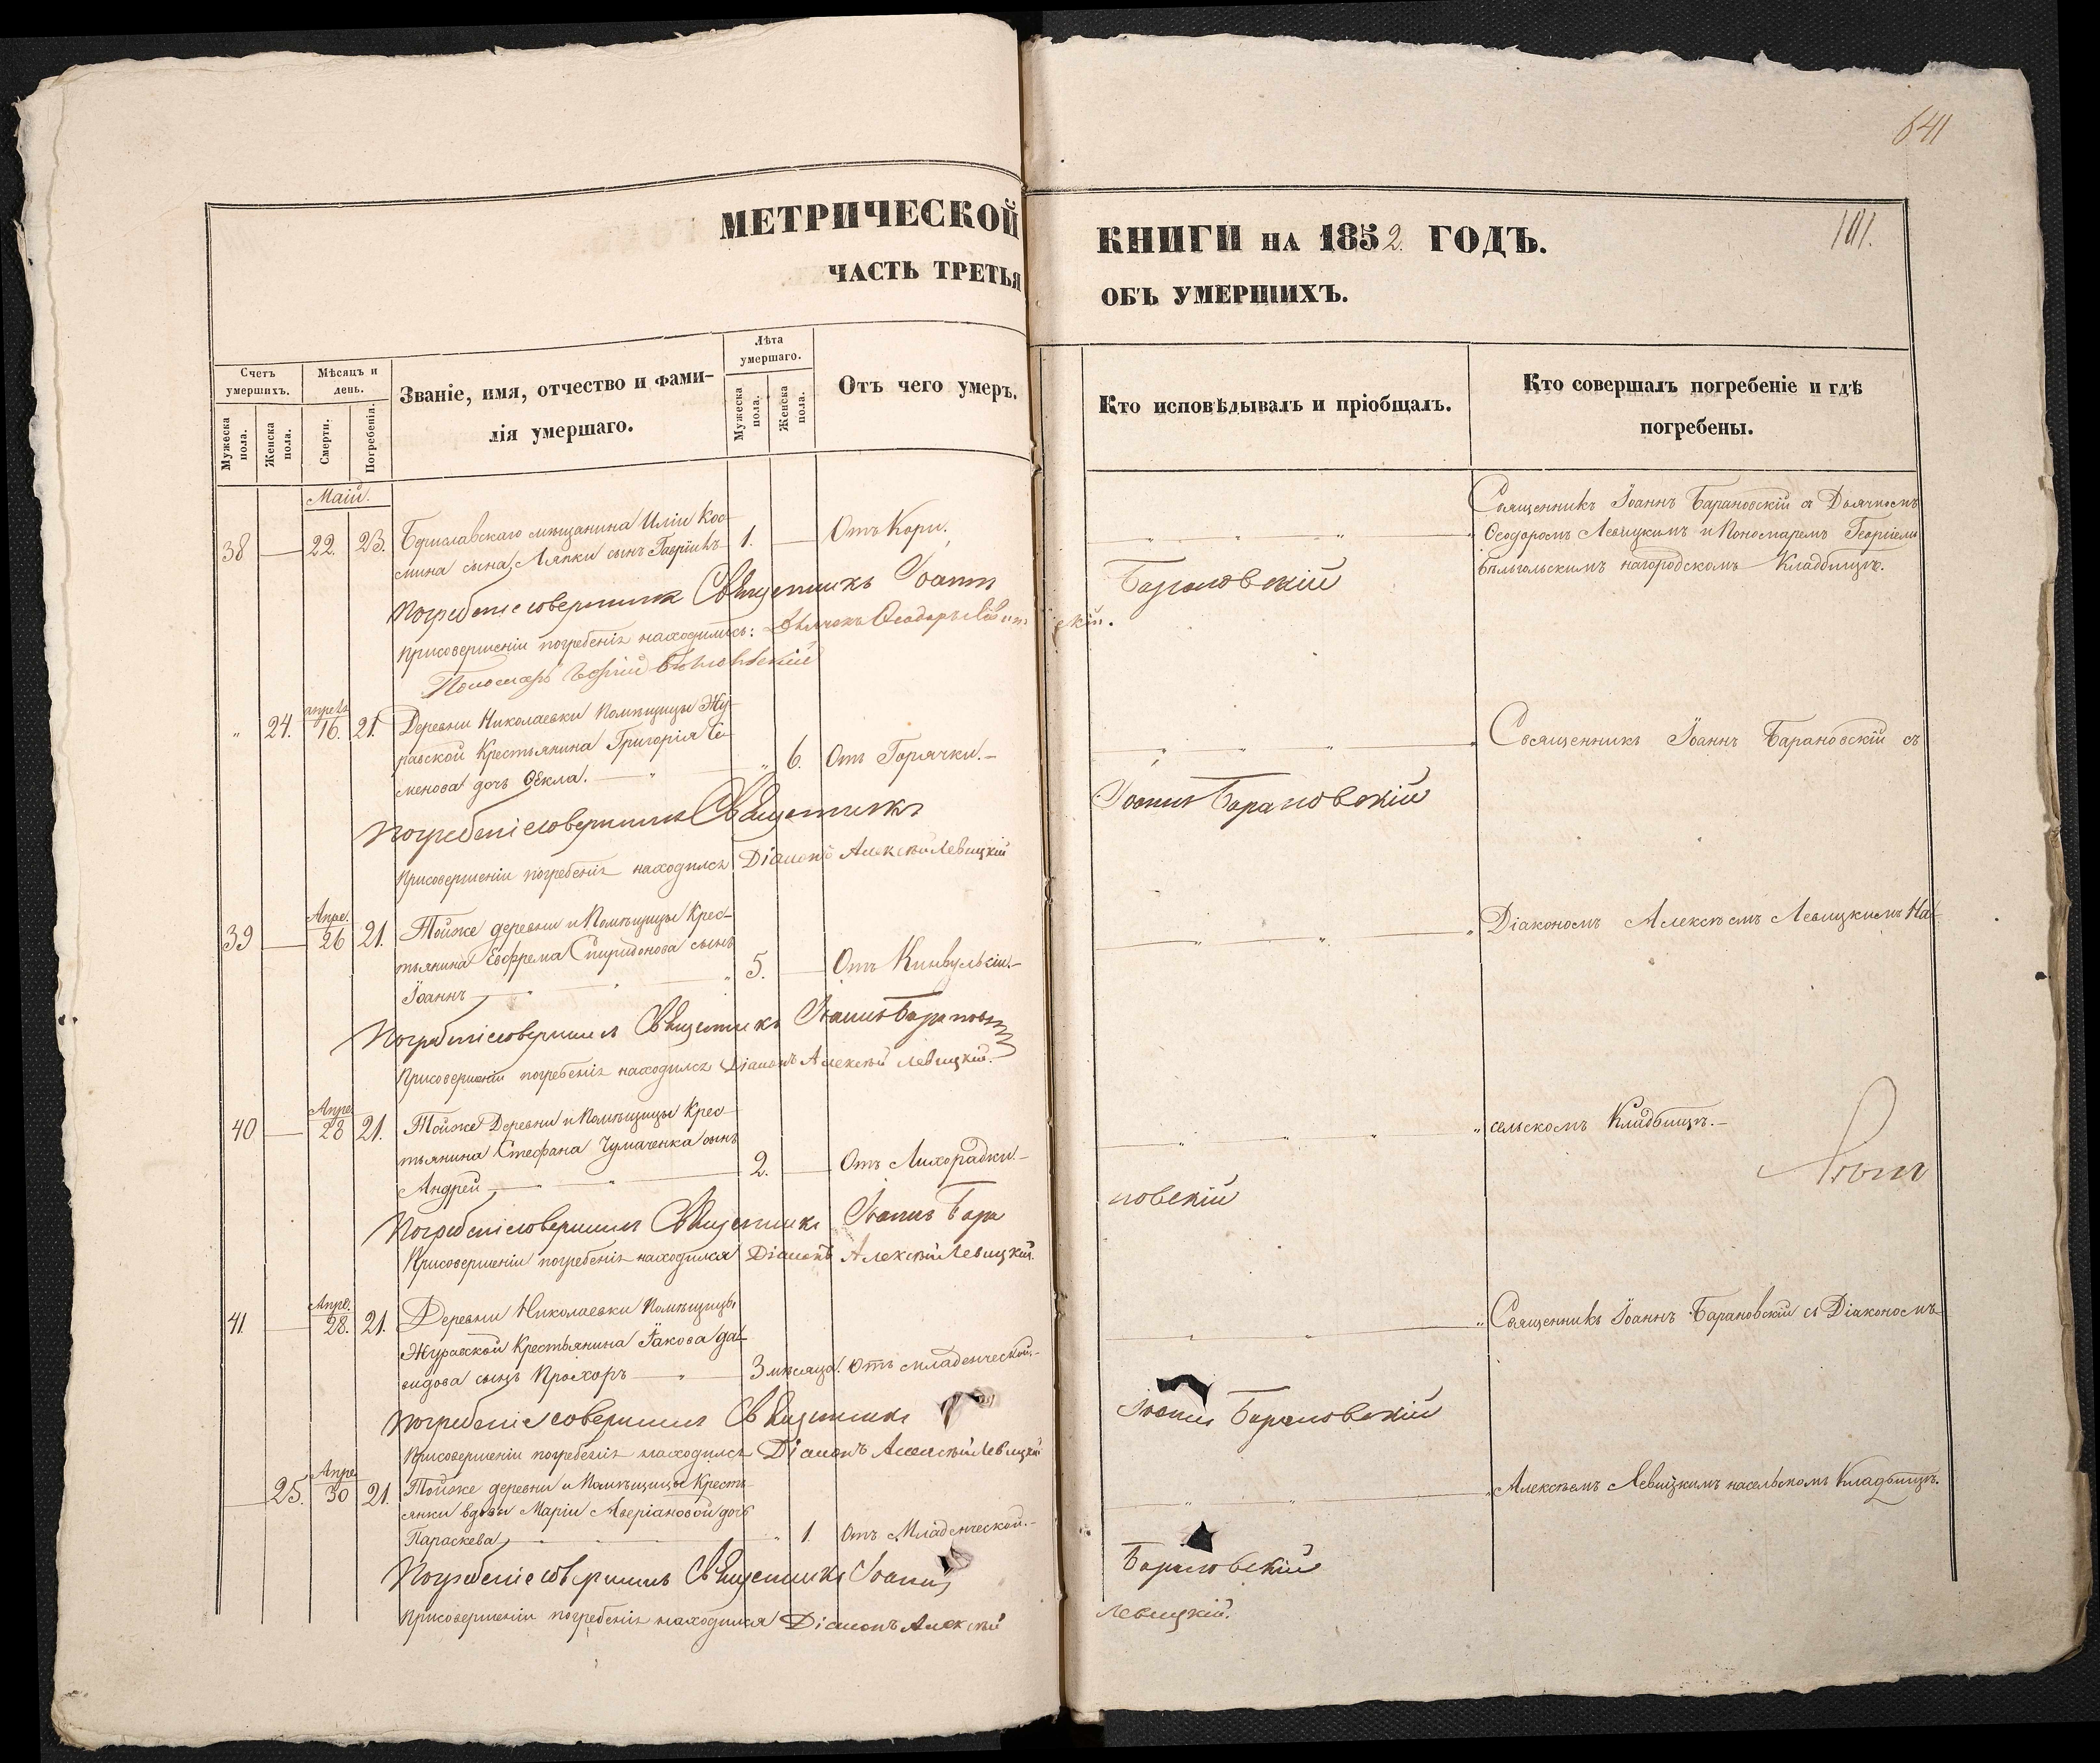 641
МЕТРИЧЕСКОЙ КНИГИ НА 1852. ГОДЪ.
101.
ЧАСТЬ ТРЕТЬЯ ОБЪ УМЕРШИХЪ.
Счетъ умершихъ.
Мужеска пола.
Женска пола.
Мѣсяцъ и день.
Смерти.
Погребенія.
Званіе, имя, отчество и фами-
лія умершаго.
Лѣта умершаго.
Мужеска пола.
Женска пола.
Отъ чего умеръ.
Кто исповѣдывалъ и пріобщалъ.
Кто совершалъ погребеніе и гдѣ
погребены.
Маій.
38 — 22. 23. Бериславскаго мѣщанина Иліи Кос-
мина сына, Ляпки сынъ Гавріилъ 1. — Отъ Кори.
Священникъ Іоаннъ Барановскій съ Дьячкомъ
Ѳеодоромъ Левицкимъ и Пономаремъ Георгіемъ
нагородскомъ Кладбищѣ.
Погребеніе совершилъ Священникъ Іоаннъ Барановскій
При совершеніи погребенія находились: Дьячокъ Ѳеодоръ Левицкій.
Пономарь
" 24. апреля 16. 21. Деревни Николаевки Помѣщицы Жу-
равской Крестьянина Григорія Се-
менова дочь Ѳекла. — " — " 6. Отъ Горячки. —
Священникъ Іоаннъ Барановскій съ
Погребеніе совершилъ Священникъ Іоаннъ Барановскій
При совершеніи погребенія находился Діаконъ Алексѣй Левицкій
39 — Апре. 26 21. Тойже деревни и Помѣщицы Крес-
тьянина Евфрема Спиридонова сынъ
Іоаннъ — 5. — Отъ Кинвульсіи. —
Діакономъ Алексѣемъ Левицкимъ На
Погребеніе совершилъ Священникъ Іоаннъ
При совершеніи погребенія находился Діаконъ Алексѣй Левицкій.
40 — Апре 28 21. Тойже Деревни и Помѣщицы Крес-
тьянина Стефана Чумаченка сынъ
Андрей — 2. — Отъ Лихорадки. —
сельскомъ Кладбищѣ. —
Погребеніе совершилъ Священникъ Іоаннъ Барановскій
При совершеніи погребенія находился Діаконъ Алексѣй Левицкій.
41 — Апре. 28. 21. Деревни Николаевки Помѣщицы
Журавской Крестьянина Іакова Да-
видова сынъ Прохоръ — 3 мѣсяца. Отъ младенческой. —
Священникъ Іоаннъ Барановскій съ Діакономъ
Погребеніе совершилъ Священникъ Іоаннъ Барановскій
При совершеніи погребенія находился Діаконъ Алексѣй Левицкій
— 25. Апре 30 21. Тойже деревни и Помѣщицы Кресть-
янки вдовы Маріи Аверіановой дочь
Параскева — " 1 Отъ Младенческой. —
Алексѣемъ Левицкимъ насельскомъ Кладбищѣ.
Погребеніе совершилъ Священникъ Іоаннъ Барановскій
При совершеніи погребенія находился Діаконъ Алексѣй Левицкій.